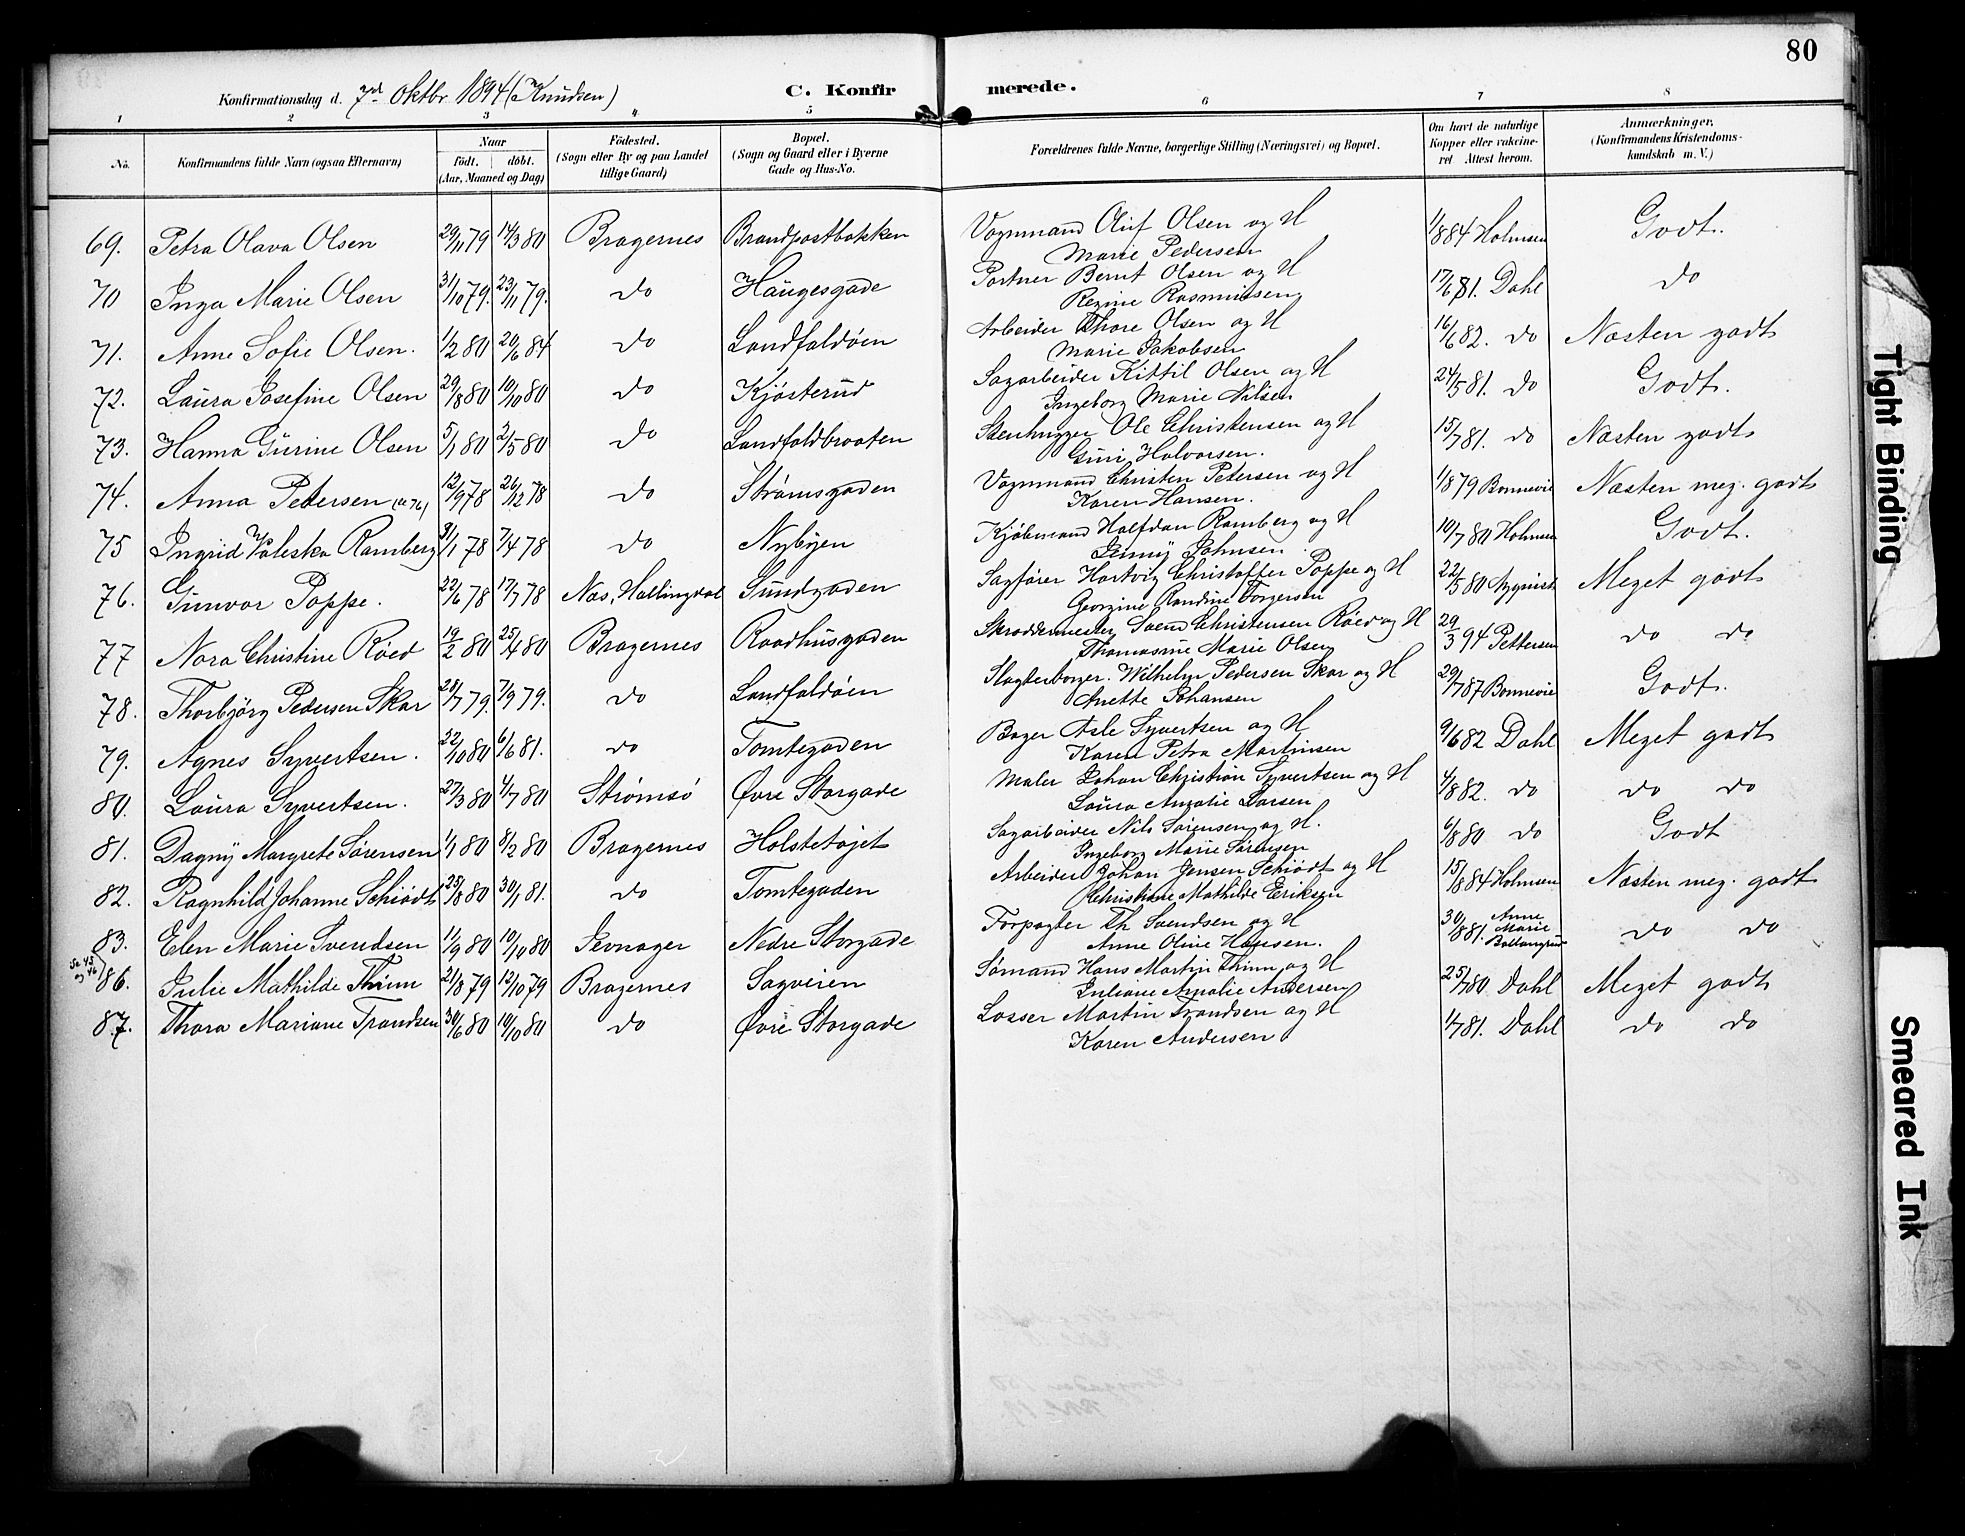 80
Konfirmationsdag d. 7de Oktbr. 1894 (Knudsen) C. Konfirmerede.
1 2 3 4 5 6 7 8
No. Konfirmandens fulde Navn (ogsaa Efternavn) Naar født. døbt. (Aar, Maaned og Dag) Fødested. (Sogn eller By og paa Landet tillige Gaard) Bopæl. (Sogn og Gaard eller i Byerne Gade og Hus-No. Forældrenes fulde Navne, borgerlige Stilling (Næringsvei) og Bopæl. Om havt de naturlige Kopper eller vakcineret Attest herom. Anmærkninger, (Konfirmandens Kristendomskundskab m. V.)
69. Petra Olava Olsen 29/11 79 14/3 80 Bragernes Brandpostbakken Vognmand Oluf Olsen og H Marie Pedersen 1/8 84 Holmsen Godt.
70 Inga Marie Olsen 31/10 79. 23/11 79. do Haugesgade Portner Bernt Olsen og H Regine Rasmussen 17/6 81. Dahl do
71. Anne Sofie Olsen. 1/2 80 20/6 84 do Landfaldøen Arbeider Thore Olsen og H Marie Jakobsen 16/6 82. do Næsten godt
72. Laura Josefine Olsen 29/8 80 10/10 80 do Kjøsterud Sagarbeider Kittil Olsen og H Ingeborg Marie Nilsen 24/5 81. do Godt.
73. Hanna Gurine Olsen 5/1 80 2/5 80 do Landfaldbraaten Stenhugger Ole Christensen og H Guri Halvorsen. 15/7 81. do Næsten godt
74. Anna Pedersen (se 76) 12/9 78 26/12 78 do Strømsgaden Vognmand Christen Petersen og H Karen Hansen. 1/8 79 Bonnevie Næsten meg. godt
75 Ingrid Valeska Ramberg 31/1 78 7/4 78 do Nybyen Kjøbmand Halfdan Ramberg og H Jenny Johnsen. 10/7 80 Holmsen Godt.
76. Gunvor Poppe. 22/6 78 17/7 78 Nes, Hallingdal Sundgaden Sagfører Hartvig Christoffer Poppe og H Georgine Randine Torgersen 22/5 80 Meget godt
77 Nora Christine Røed 19/2 80 25/4 80 Bragernes Raadhusgaden Skræddermester Svend Christensen Røed og H Thomasine Marie Olsen 29/3 94 Pettersen do do
78. Thorbjørg Pedersen Skar 28/7 79. 7/9 79. do Landfaldøen Slagterborger. Wilhelm Pedersen Skar og H Anette Johansen 29/7 87 Bonnevie Godt.
79. Agnes Syvertsen. 22/10 80 6/6 81. do Tomtegaden Bager Asle Syvertsen og H Karen Petra Martinsen 9/6 82 Dahl Meget godt
80. Laura Syvertsen. 27/3 80 4/7 80 Strømsø Øvre Storgade Maler Johan Christian Syvertsen og H Laura Amalie Larsen 4/8 82. do do do
81. Dagny Margrete Sørensen 1/1 80 8/2 80 Bragernes Holstetøjet Sagarbeider Nils Sørensen og H. Ingeborg Marie Sørensen 6/8 80 do Godt
82. Ragnhild Johanne Schiødt 25/8 80 30/1 81. do Tomtegaden Arbeider Johan Jensen Schiødt og H Christiane Mathilde Eriksen 15/8 84 Holmsen Næsten meg. godt
83. Elen Marie Svendsen 11/9 80 10/10 80 Jevnager Nedre Storgade Forpagter Th Svendsen og H Anne Oline Hansen. 30/8 81. Anne Marie do do
se 45 og 46
86. Julie Mathilde Thinn 21/8 79 12/10 79 Bragernes Sagveien Sømand Hans Martin Thinn og H Juliane Amalie Andersen 25/7 80 Dahl Meget godt
87. Thora Mariane Trandsen 30/6 80 10/10 80 do Øvre Storgade Losser Martin Trandsen og H Karen Andersen 1/7 81. Dahl do do
Tight Binding
Smeared Ink